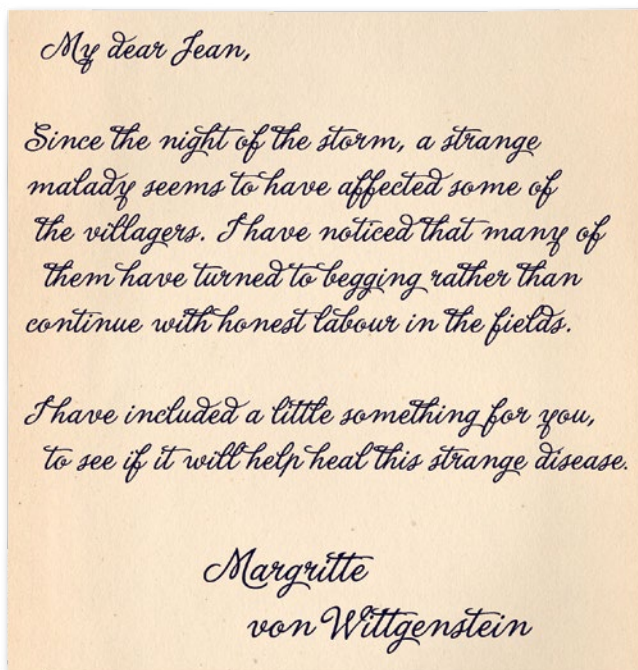 My dear Jean,
Since the night of the storm, a strange
malady seems to have affected some of
the villagers. I have noticed that many of
them have turned to begging rather than
continue with honest labour in the fields.
I have included a little something for you,
to see if it will help heal this strange disease.
Margritte
von Wittgenstein